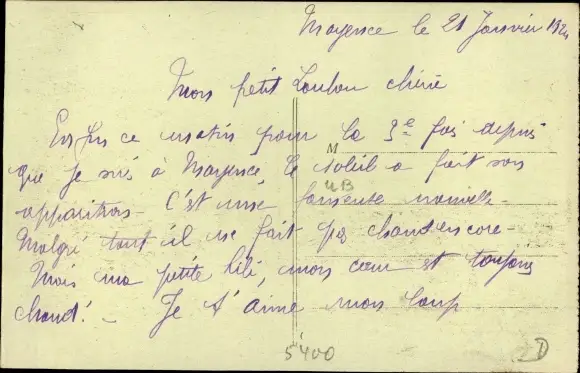 Mayence le 21 Janvier 192
Mon petit Loulou chérie
Enfin ce matin pour la 3e fois depuis
que je suis à Mayence, le soleil a fait son
apparition - C'est une fameuse nouvelle -
Malgré tout il ne fait pas chaud encore -
Mais ma petite Lilé, mon cœur est toujours
chaud! - Je t'aime mon loup
M
4B
5400
D